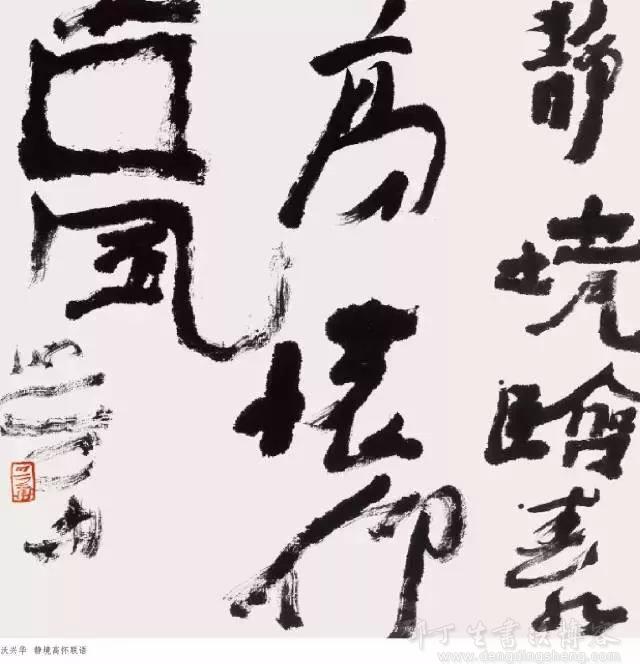 静境臨春水
高懷仰
古風
沃兴华 静境高怀联语
邓丁生书法博客
www.dengdingsheng.com